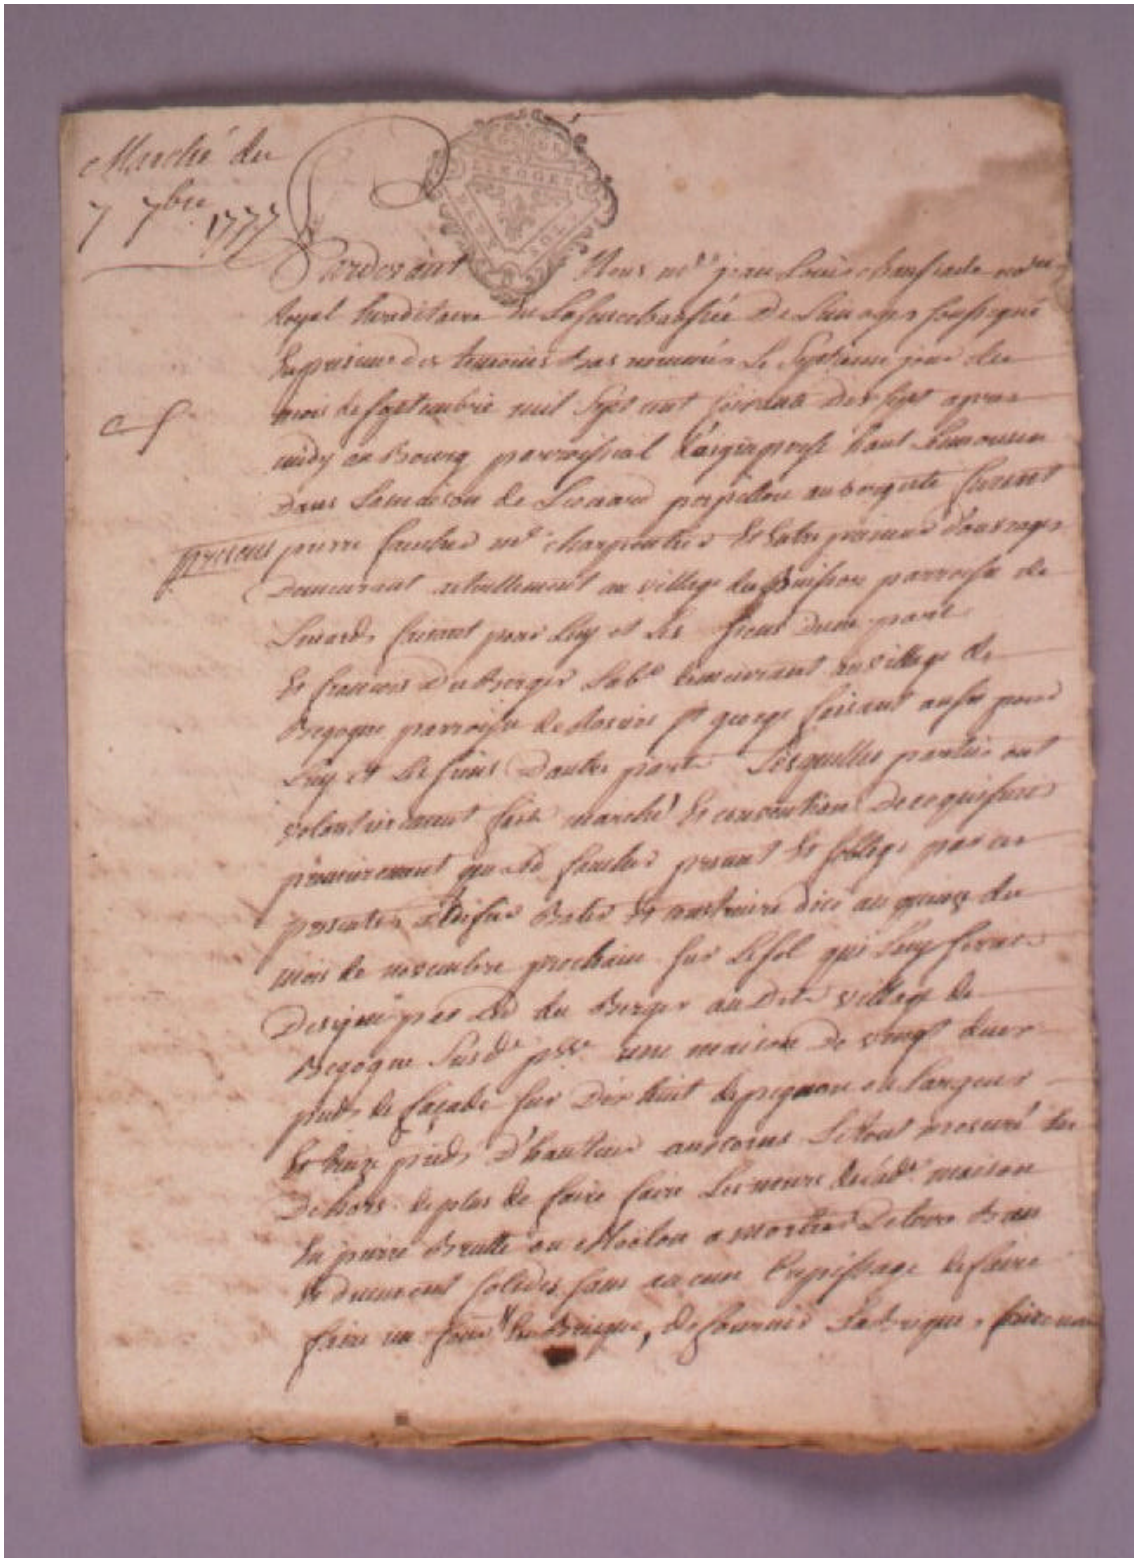 Marché du
7 7bre 1777
Pardevant Nous me jean Louis nore
Royal hereditaire de La senechaussée De Limoges soussigné
En presence des temoins bas nommés Le Septieme jour du
mois de septembre mil sept cent soixante dix sept apres
midy au Bourg parroissial haut Limousin
Dans Lamaison de Leonard aubergiste furent
presens pierre faucher me charpentier Et Entrepreneur d'ouvrages
Demeurant actuellement au village du Buisson parroisse de
Linards faisant pour Luy et Les siens D'une part
Et francois Du Berger Labr demeurant au village de
Begogne parroisse de St george faisant aussy pour
Luy et Les siens D'autre part Lesquelles parties ont
volontairement fait marché Et convention De ce qui suit
premierement que Led faucher promet Et soblige par ces
presentes Edifier Batir Et construire dici au quinze du
mois de novembre prochain sur Le sol qui Luy sera
Designé par Led du Berger au Dit village de
Begogne Susde psse une maison De vingt deux
pieds de façade sur Dix huit de pignon ou Largeur
Et treize pieds D'hauteur Le tout mesuré du
Dehors. de plus de faire faire Les murs de lade maison
En pierre Brutte ou Moilon a mortier De terre Bien
Et duement solides sans aucun Crepissage de faire
faire un four En Brique, de fournir La Brique